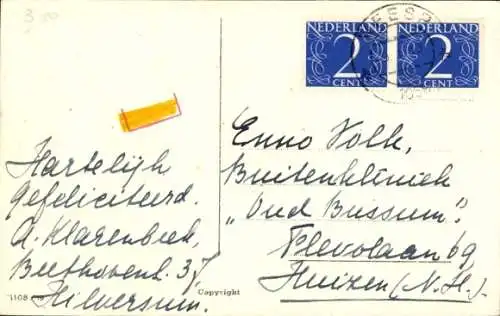 3.50
NEDERLAND
2
CENT
NEDERLAND
2
CENT
Hartelijk
gefeliciteerd.
A. Klarenbeek,
Beethovenl. 37,
Hilversum.
Enno Volk,
Buitenkliniek
„Oud Bussum".
Flevolaan 69
Huizen (N.H.)
Copyright